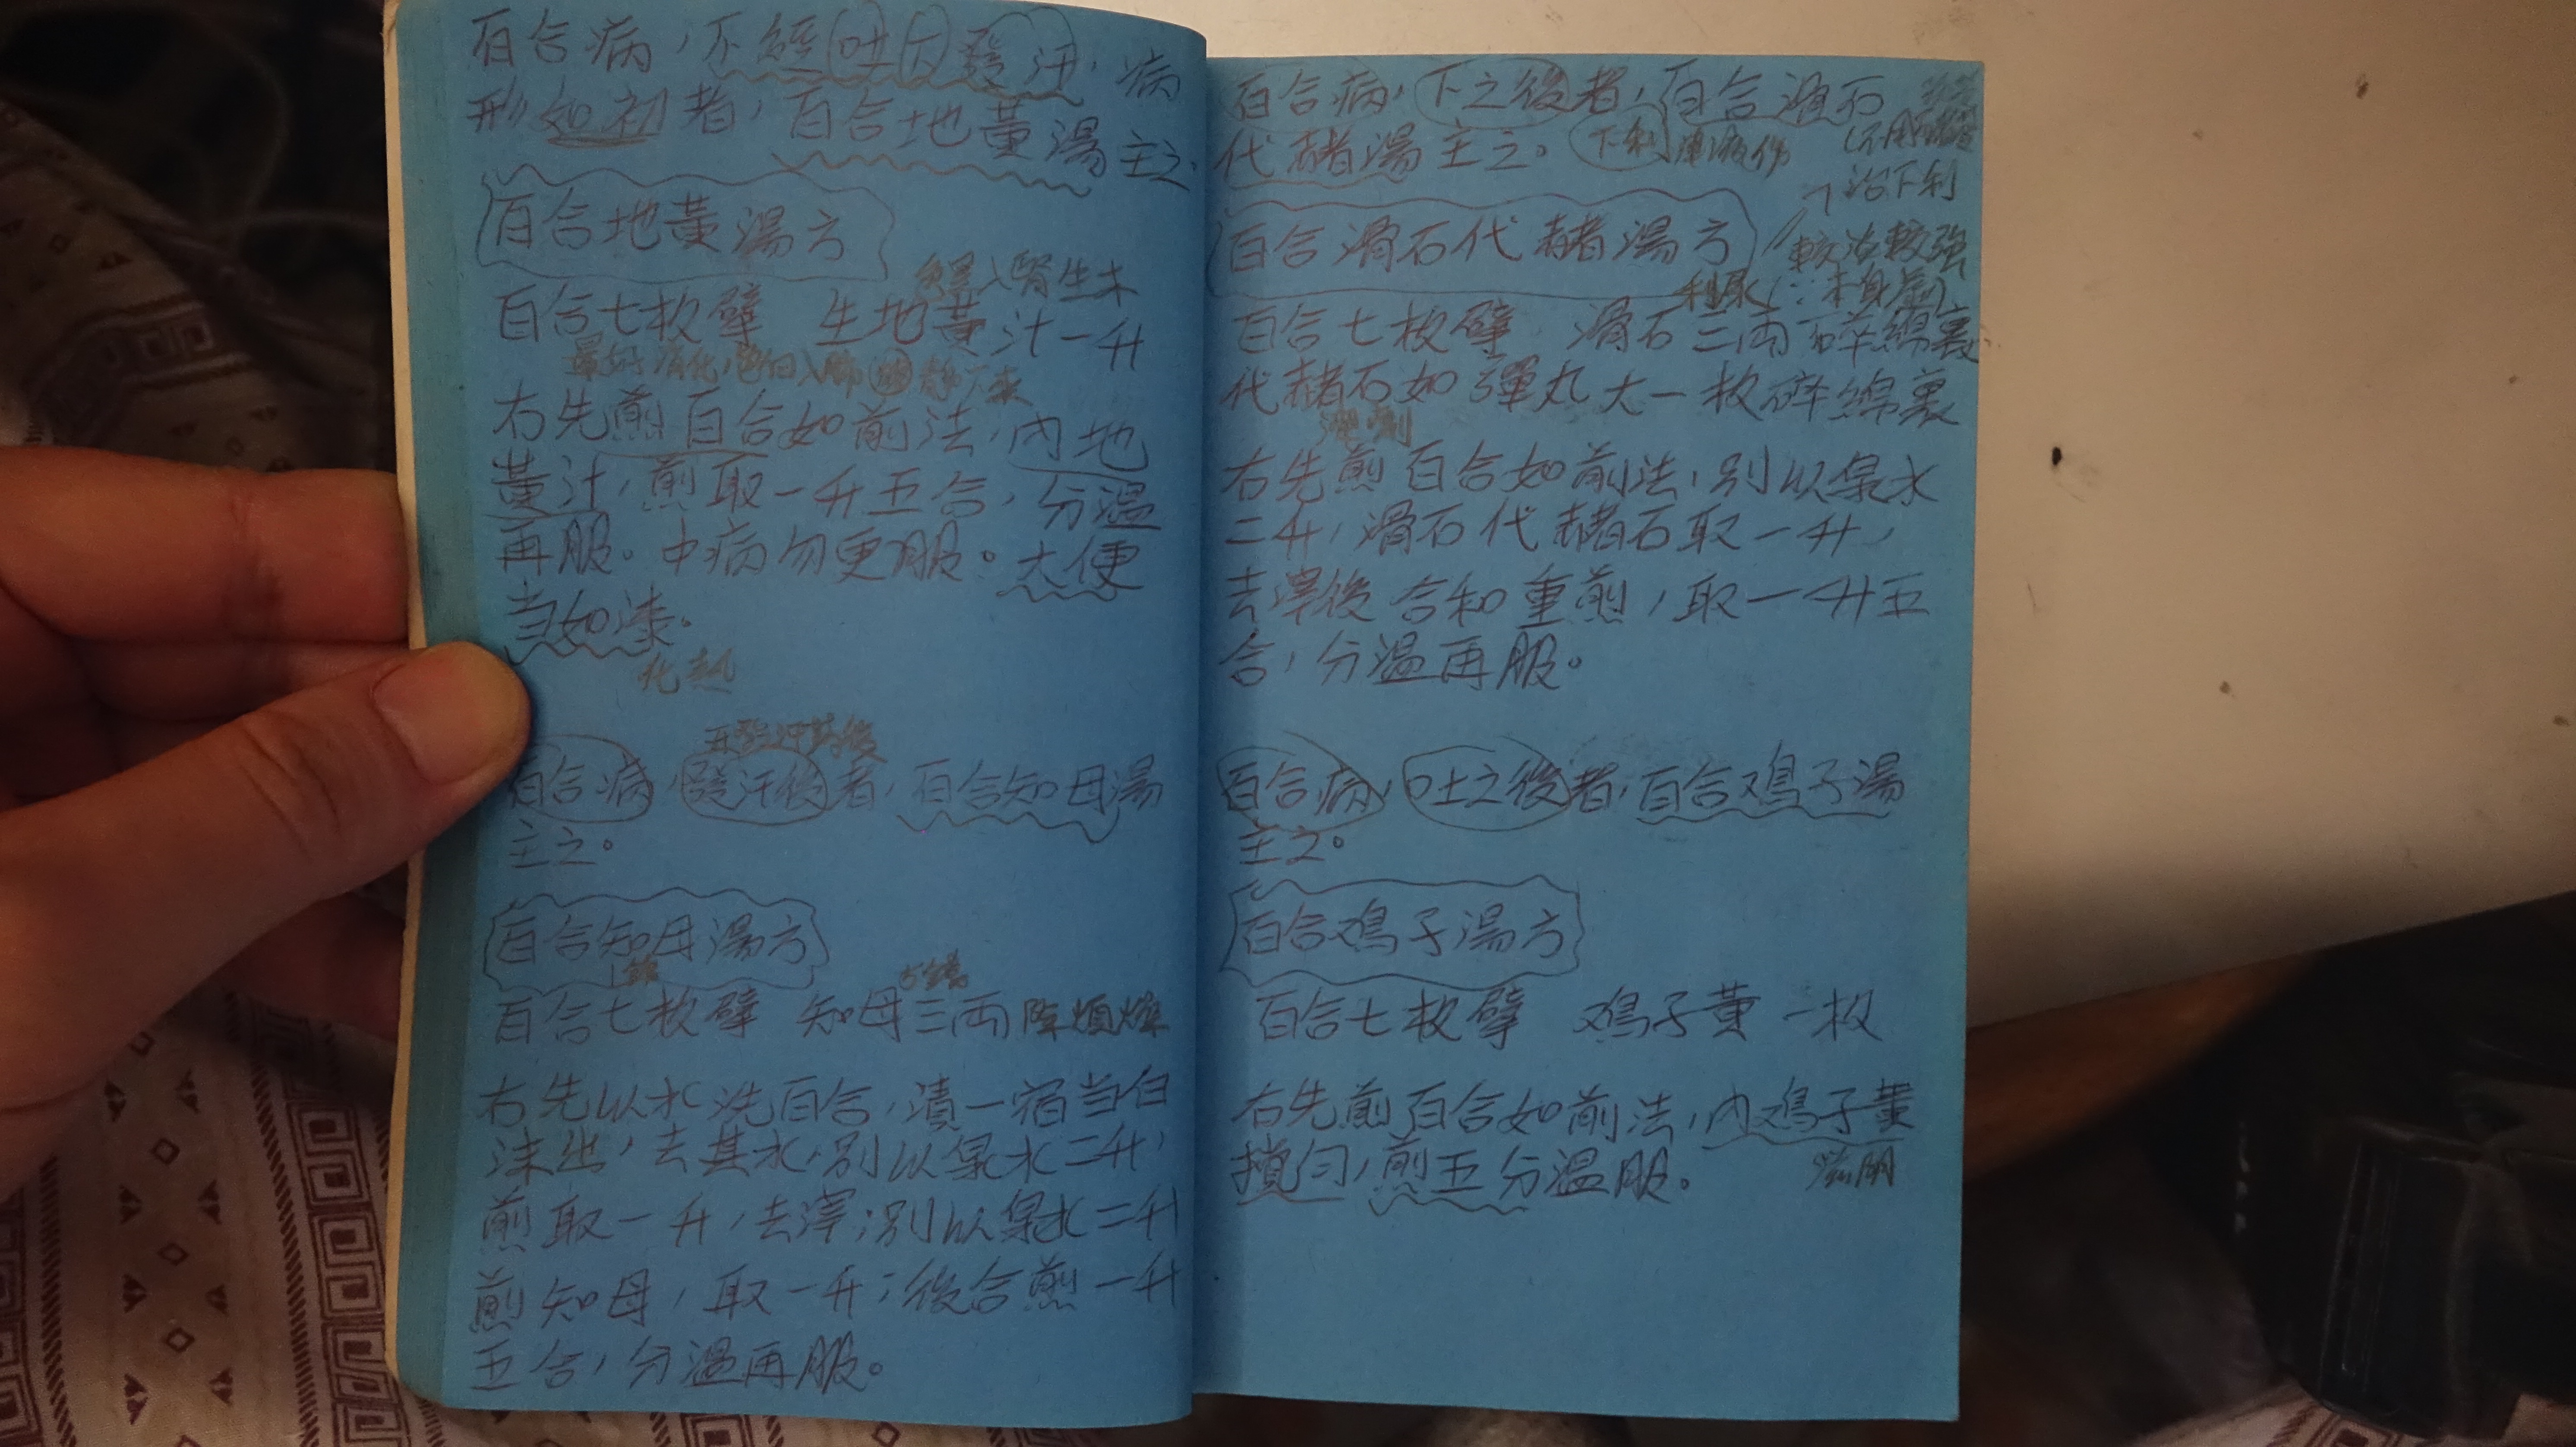 百合病，不經吐下發汗，病
形如初者，百合地黃湯主之
百合地黃湯方
黑入腎生木
百合七枚擘　生地黃汁一升
右先煎百合如前法，內地
黃汁，煎取一升五合，分溫
再服。中病勿更服。大便
当如漆。
化熱
百合病，發汗後者，百合知母湯
主之。
百合知母湯方
百合七枚擘　知母三兩 除煩燥
右先以水洗百合，漬一宿当白
沫出，去其水，別以泉水二升，
煎取一升，去滓；別以泉水二升
煎知母，取一升；後合煎一升
五合，分溫再服。
百合病，下之後者，百合滑石
代赭湯主之。下利 津液伤
治下利
百合滑石代赭湯方
較淡較強
利尿(∵本身虛)
百合七枚擘　滑石三兩碎綿裹
代赭石如彈丸大一枚碎綿裹
右先煎百合如前法，別以泉水
二升，滑石代赭石取一升，
去滓後合和重煎，取一升五
合，分溫再服。
百合病，吐之後者，百合鸡子湯
主之。
百合鸡子湯方
百合七枚擘　鸡子黃一枚
右先煎百合如前法，內鸡子黃
攪匀，煎五分溫服。